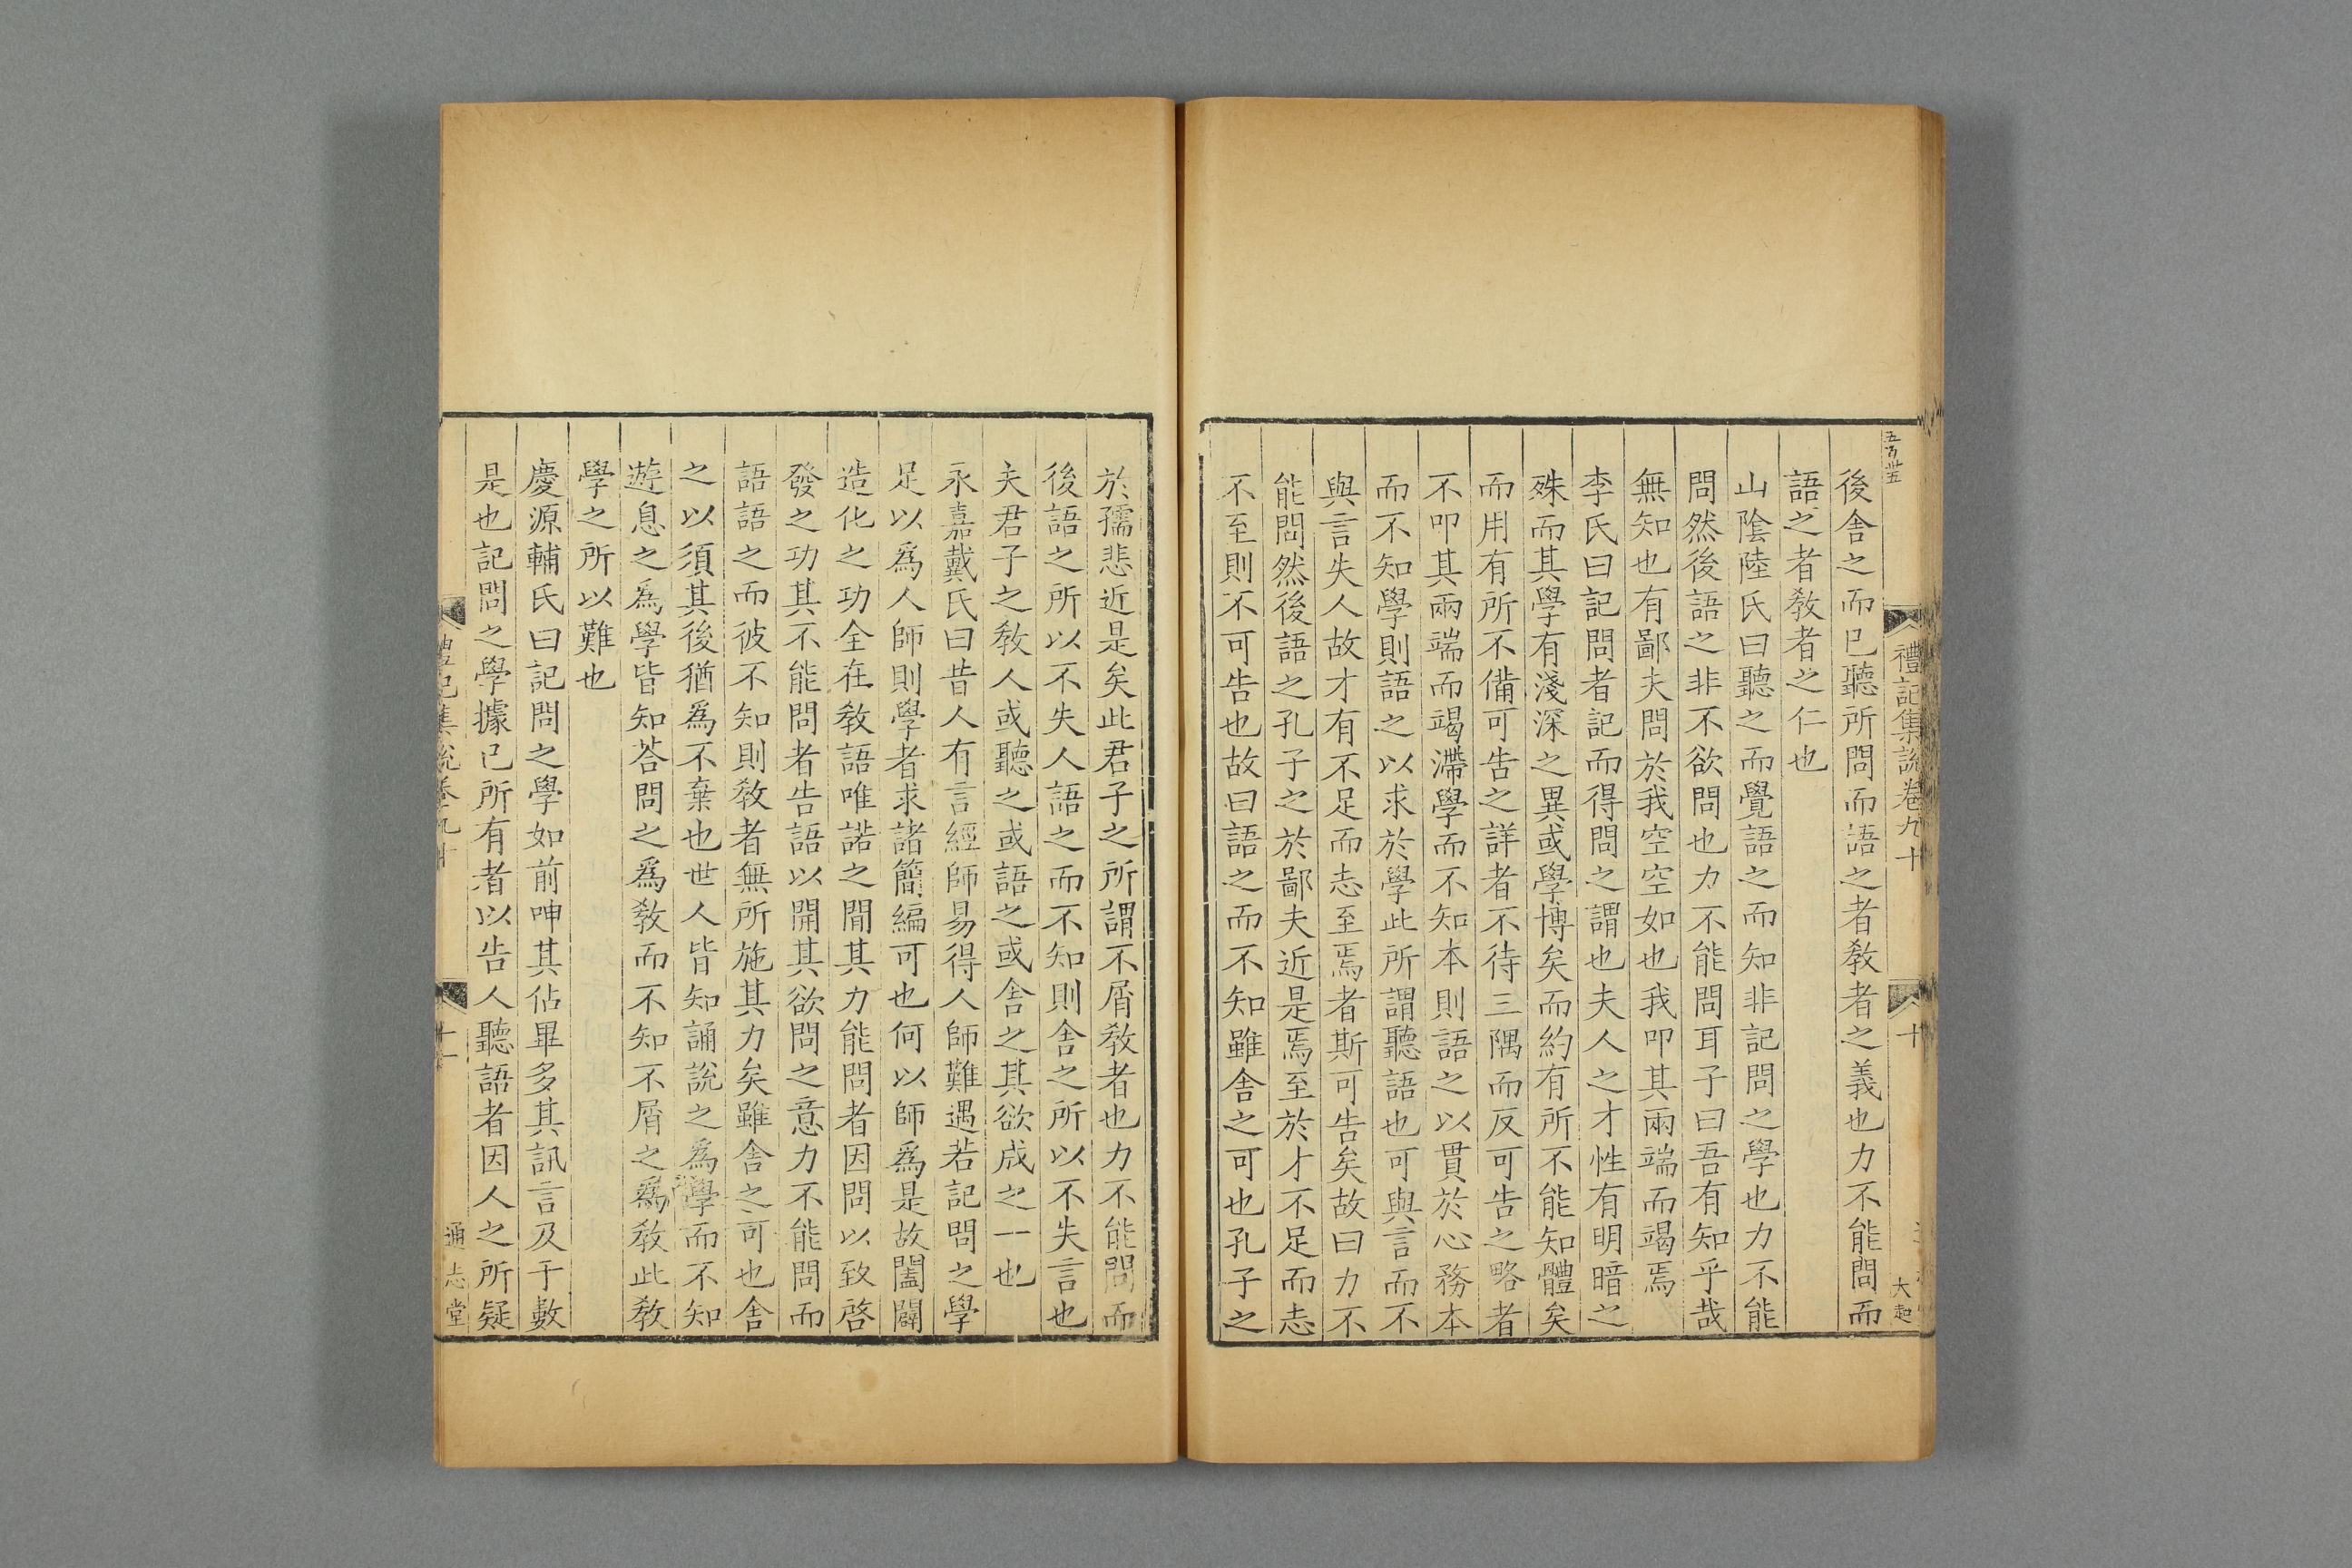 五百卅五
禮記集說卷九十
十
大起
後舍之而已聽所問而語之者教者之義也力不能問而
語之者教者之仁也
山陰陸氏曰聽之而覺語之而知非記問之學也力不能
問然後語之非不欲問也力不能問耳子曰吾有知乎哉
無知也有鄙夫問於我空空如也我叩其兩端而竭焉
李氏曰記問者記而得問之謂也夫人之才性有明暗之
殊而其學有淺深之異或學博矣而約有所不能知體矣
而用有所不備可告之詳者不待三隅而反可告之略者
不叩其兩端而竭滯學而不知本則語之以貫於心務本
而不知學則語之以求於學此所謂聽語也可與言而不
與言失人故才有不足而志至焉者斯可告矣故曰力不
能問然後語之孔子之於鄙夫近是焉至於才不足而志
不至則不可告也故曰語之而不知雖舍之可也孔子之
於孺悲近是矣此君子之所謂不屑教者也力不能問而
後語之所以不失人語之而不知則舍之所以不失言也
夫君子之教人或聽之或語之或舍之其欲成之一也
永嘉戴氏曰昔人有言經師易得人師難遇若記問之學
足以爲人師則學者求諸簡編可也何以師爲是故闔闢
造化之功全在教語唯諾之間其力能問者因問以致啓
發之功其不能問者告語以開其欲問之意力不能問而
語語之而彼不知則教者無所施其力矣雖舍之可也舍
之以須其後猶爲不棄也世人皆知誦說之爲學而不知
遊息之爲學皆知荅問之爲教而不知不屑之爲教此教
學之所以難也
慶源輔氏曰記問之學如前呻其佔畢多其訊言及于數
是也記問之學據已所有者以告人聽語者因人之所疑
禮記集說卷九十
十一
通志堂